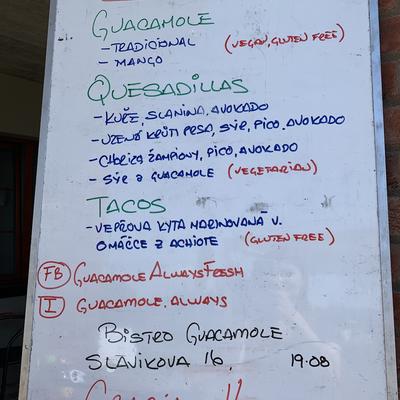 GUACAMOLE
- TRADICIONAL (VEGAN, GLUTEN FREE)
- MANGO
QUESADILLAS
- KUŘE, SLANINA, AVOKADO
- UZENÁ KRŮTI PRSA, SÝR, PICO, AVOKADO
- CHORIZO ŽAMPIONY, PICO, AVOKADO
- SÝR Z GUACAMOLE (VEGETARIAN)
TACOS
- VEPŘOVA KYTA MARINOVANÁ V.
OMÁČCE Z ACHIOTE (GLUTEN FREE)
FB GUACAMOLE ALWAYS FRESH
I GUACAMOLE.ALWAYS
BISTRO GUACAMOLE
SLAVIKOVA 16, 19.08